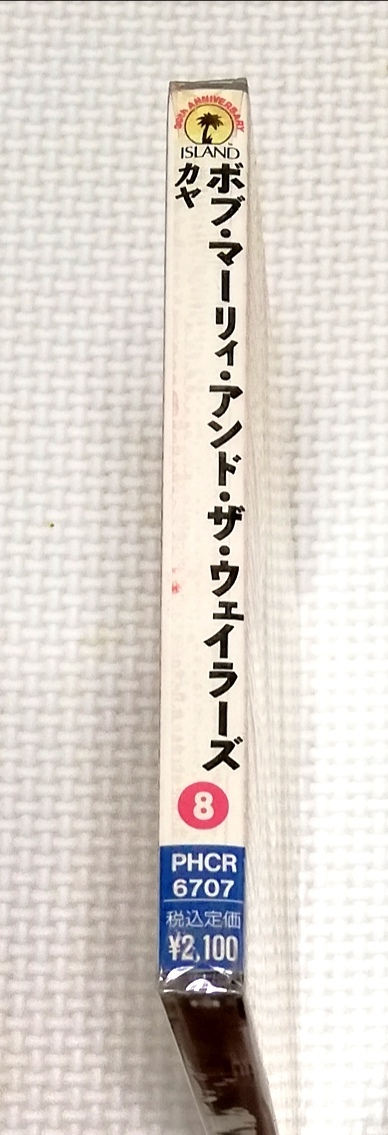 30th ANNIVERSARY
ISLAND
ボブ・マーリィ・アンド・ザ・ウェイラーズ
カヤ
8
PHCR
6707
税込定価
¥2,100